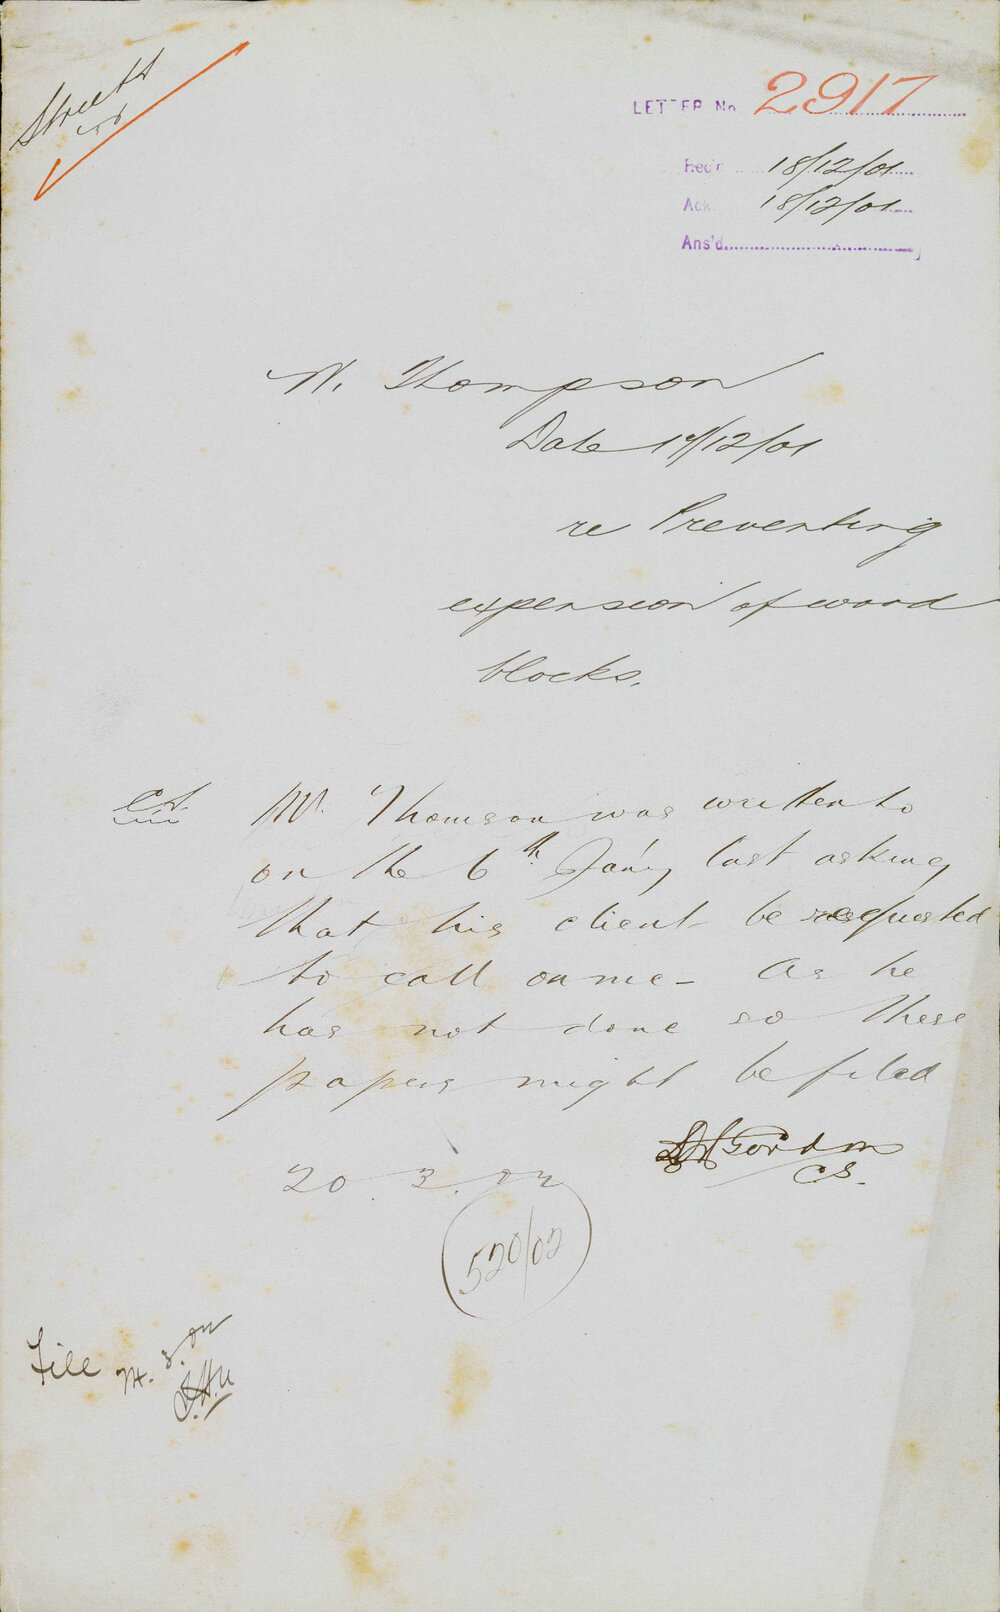 Streets
LETTER No 2917
Rec'd 18/12/01
Ack 18/12/01
Ans'd
W. Thompson
Date 17/12/01
re Preventing
expension of wood
blocks.
Mr. Thomson was written to
on the 6th Jan'y last asking
that his client be requested
to call on me - As he
has not done so these
papers might be filed
Gordon
CS.
20.3.02
520/02
File